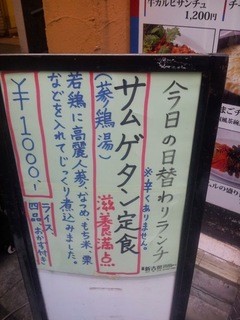 今日の日替わりランチ
※辛くありません。
サムゲタン定食
滋養満点
(参鶏湯)
若鶏に高麗人参、なつめ、もち米、栗
などを入れてじっくり煮込みました。
ライス
四品、おかず付き
¥1000.-
牛カルビサンチュ
1,200円